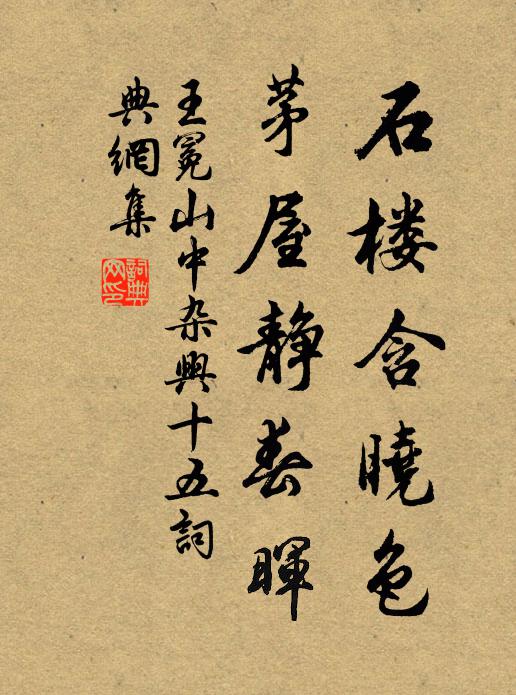 石楼含曉色
茅屋静春暉
王冕山中杂興十五詞
典網集
詞典
网印